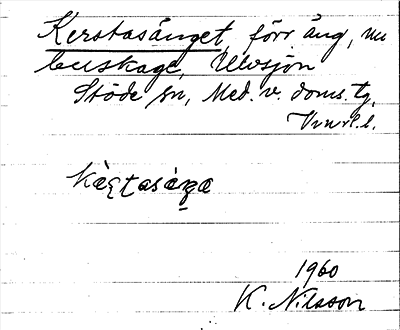 Kerstasänget, förr äng, nu
betskage, Ulvsjön
Stöde sn, Med. v. doms. tg,
Vnrl. l.
1960
K. Nilsson